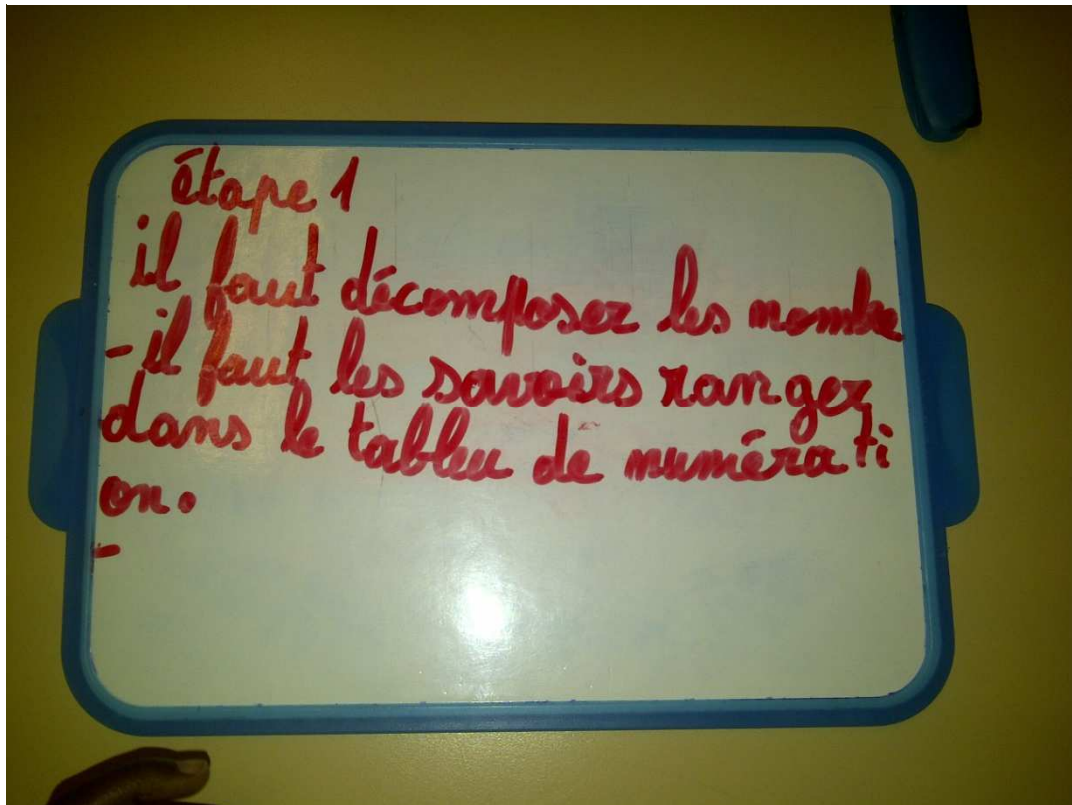 étape 1
il faut décomposer les nombre
- il faut les savoirs ranger
dans le tableu de numérati
on.
-